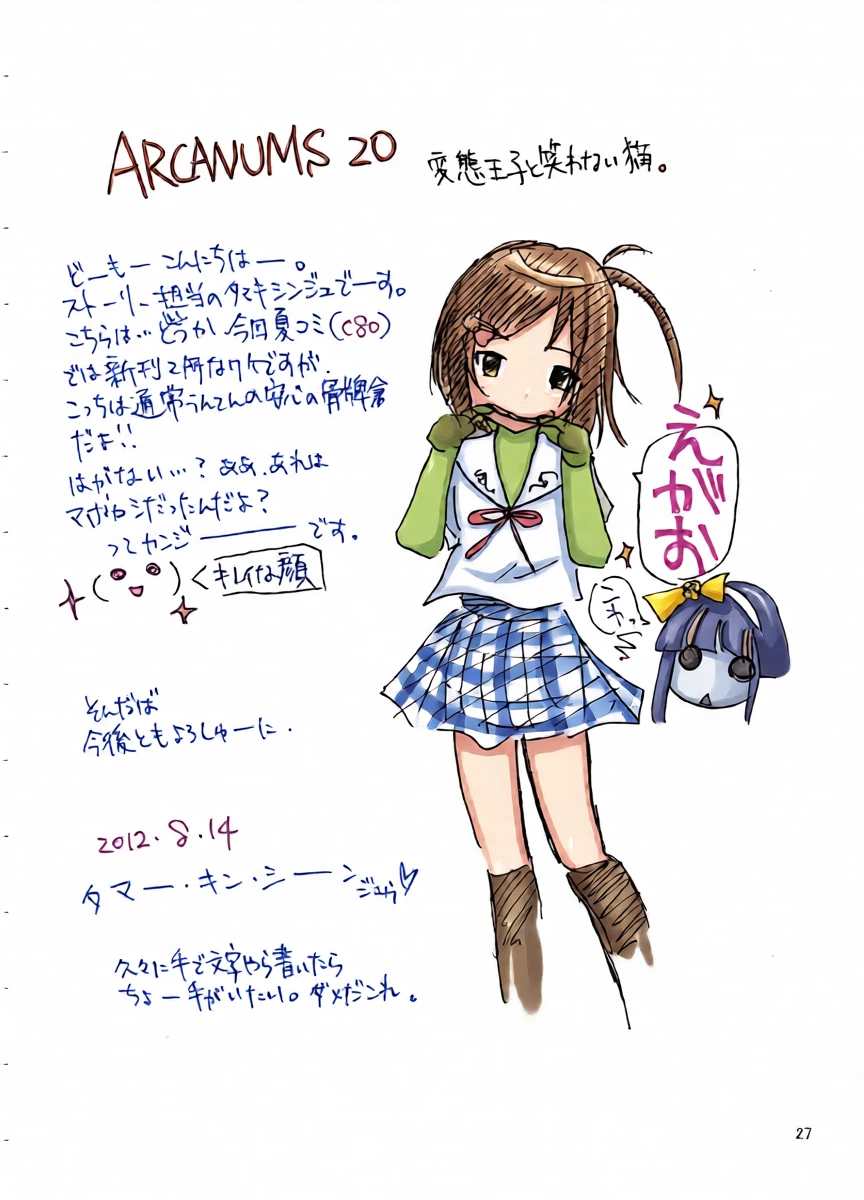 ARCANUMS 20
変態王子と笑わない猫。
どーもー こんにちはー。
ストーリー担当のタマキシンジュでーす。
こちらは…どうか 今回夏コミ(C80)
では新刊2冊なワケですが、
こっちは通常うんてんの安心の骨牌倉
だよ!!
はがない…? ああ、あれは
マボロシだったんだよ?
ってカンジーーーです。
キレイな顔
えがお
こわっ
そんだば
今後ともよろしゅーに.
2012.8.14
タマー・キン・シーンジュゥ♡
久々に手で文字やら書いたら
ちょー手がいたい。ダメだこれ。
27